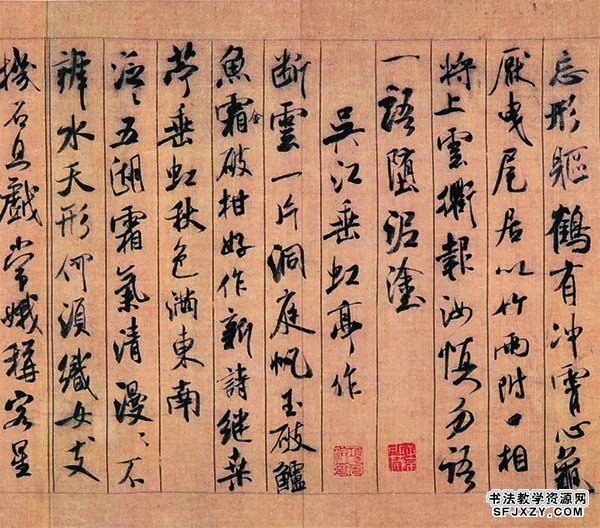 忘形軀鶴有冲霄心龜
厭曳尾居以竹兩附口相
將上雲衢報汝慎勿語
一語墮泥塗
吳江垂虹亭作
断雲一片洞庭帆玉破鱸
魚霜金破柑好作新詩継桑
苧垂虹秋色滿東南
泛〻五湖霜氣清漫〻不
辨水天形何須織女支
機石且戲常娥稱客星
书法教学资源网
SFJXZY.COM